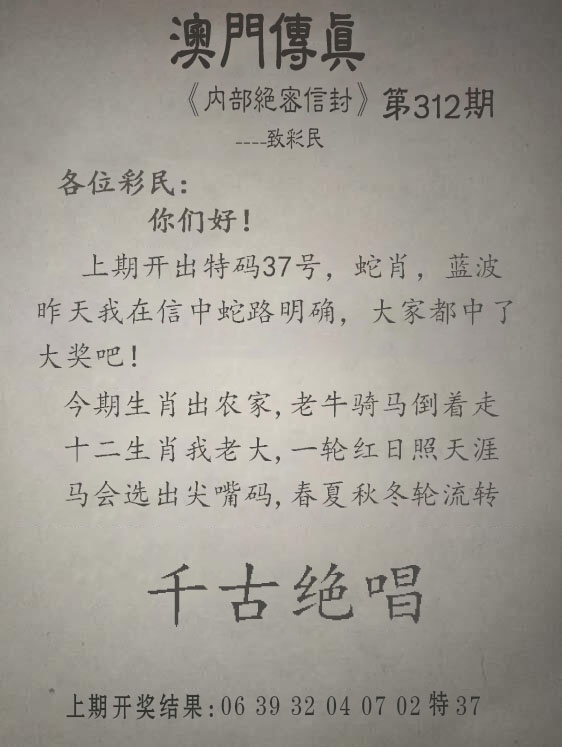 澳門傳真
《内部絕密信封》第312期
----致彩民
各位彩民:
你们好!
上期开出特码37号，蛇肖，蓝波
昨天我在信中蛇路明确，大家都中了
大奖吧!
今期生肖出农家,老牛骑马倒着走
十二生肖我老大,一轮红日照天涯
马会选出尖嘴码,春夏秋冬轮流转
千古绝唱
上期开奖结果:06 39 32 04 07 02 特 37